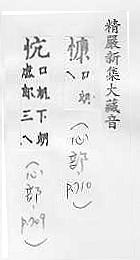 精嚴新集大藏音
慷 口朗
(心部, p.710)
忼 口机下朗
虛郎三
(心部 p.709)